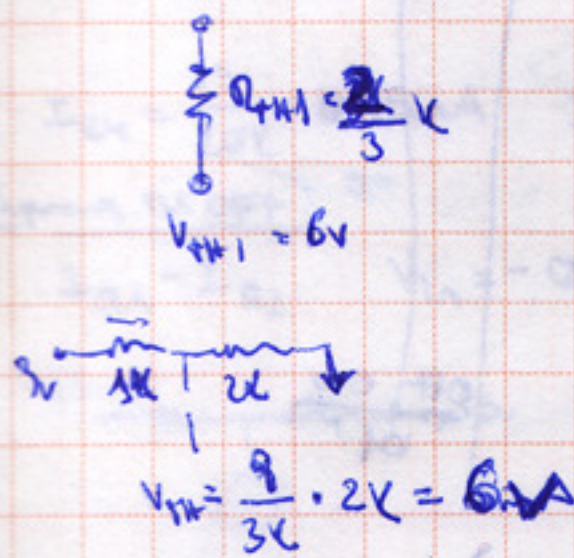 R_TH1 = 2/3 K
V_TH1 = 6V
9V 1K 2K
V_TH = 9/3K · 2K = 6V